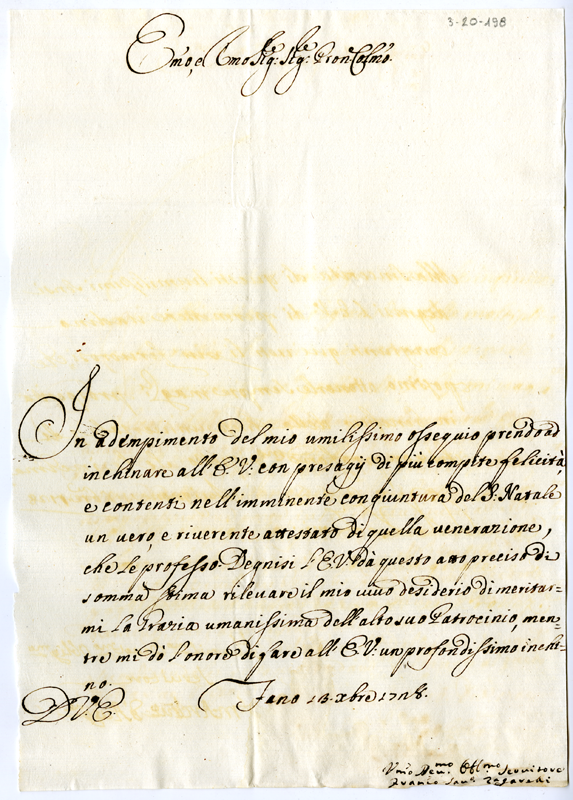 3-20-198
Emo, e Rmo Sig:re Sig:re Pron Colmo.
In adempimento del mio umilissimo ossequio prendo ad
inchinare all'E.V. con presagij di più compite felicità,
e contenti nell'imminente congiuntura del S. Natale
un vero, e riverente attestato di quella venerazione,
che le professo. Degnisi l'E.V. dà questo atto preciso di
somma stima rilevare il mio vivo desiderio di meritar=
mi la Grazia umanissima dell'alto suo Patrocinio, men=
tre mi dò l'onore di fare all'E.V. un profondissimo inchi=
no.
D.V.E. Fano 13. Xbre 1748.
Umo Devmo Obblmo Servitore